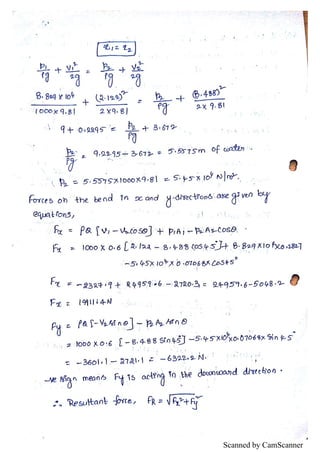 z₁ = z₂
p₁/ρg + V₁²/2g = p₂/ρg + V₂²/2g
8.829 x 10⁴/1000 x 9.81 + (2.122)²/2 x 9.81 = p₂/ρg + (8.488)²/2 x 9.81
9 + 0.2295 = p₂/ρg + 3.672
p₂/ρg = 9.2295 - 3.672 = 5.5575m of water
∴ p₂ = 5.5575 x 1000 x 9.81 = 5.45 x 10⁴ N/m².
Forces on the bend in x and y-directions are given by
equations,
Fx = ρQ [V₁ - V₂cosθ] + p₁A₁ - p₂A₂cosθ.
Fx = 1000 x 0.6 [2.122 - 8.488 cos45°] + 8.829 x 10⁴ x 0.2827
- 5.45 x 10⁴ x 0.07068 x cos45°
Fx = -2327.9 + 24959.6 - 2720.3 = 24959.6 - 5048.2
Fx = 19911.4 N
Fy = ρQ [-V₂sinθ] - p₂A₂sinθ
= 1000 x 0.6 [-8.488 sin45] - 5.45 x 10⁴ x 0.07068 x sin45°
= -3601.1 - 2721.1 = -6322.2 N.
-ve sign means Fy is acting in the downward direction.
∴ Resultant force, FR = √Fx² + Fy²
Scanned by CamScanner